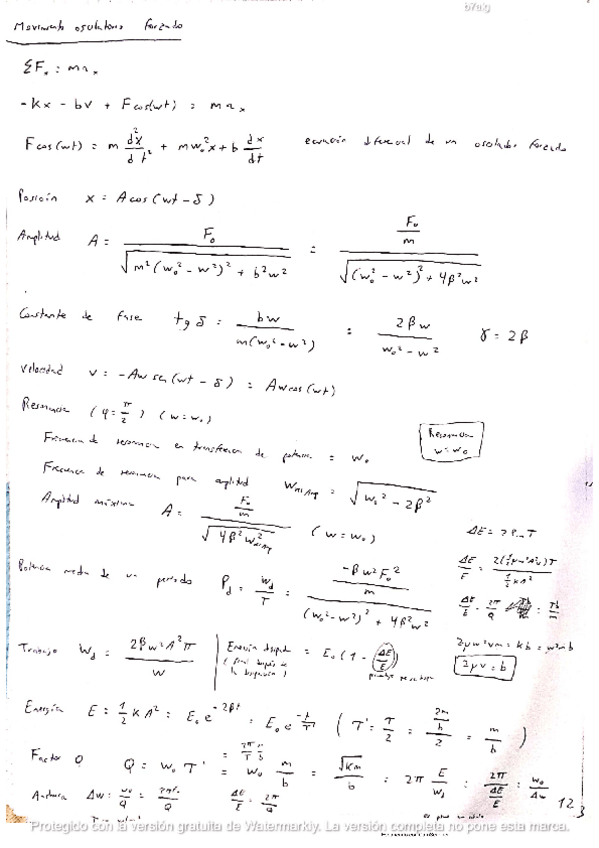 b7alg
Movimiento oscilatorio forzado
ΣFₓ = maₓ
-kx - bv + F cos(wt) = maₓ
F cos(wt) = m d²x/dt² + mw₀²x + b dx/dt ecuación diferencial de un oscilador forzado
Posición x = A cos(wt - δ)
Amplitud A = F₀ / √(m²(w₀² - w²)² + b²w²) = (F₀/m) / √((w₀² - w²)² + 4β²w²)
Constante de fase tg δ = bw / m(w₀² - w²) = 2βw / (w₀² - w²) γ = 2β
Velocidad v = -Aw sen(wt - δ) = Aw cos(wt)
Resonancia (φ = π/2) (w = w₀)
Resonancia w = w₀
Frecuencia de resonancia en transferencia de potencia = w₀
Frecuencia de resonancia para amplitud = √(w₀² - 2β²)
Amplitud máxima A = (F₀/m) / √(4β²w²) (w = w₀)
Potencia media de un periodo P_d = w_d/T = (-βw²F₀²/m) / ((w₀² - w²)² + 4β²w²)
ΔE/E = 2π/Q
Trabajo W_d = 2βw²A²π / w
Energía disipada = E₀(1 - ΔE/E)
2μv = b
Energía E = 1/2 kA² = E₀e^(-2βt) = E₀e^(-t/T') (T' = T/2 = (2m/b)/2 = m/b)
Factor Q Q = w₀T' = w₀ m/b = √(km)/b = 2π E/W_d = 2π/(ΔE/E) = w₀/Δw
Anchura Δw = w₀/Q ΔE/E = 2π/Q
12
Protegido con la versión gratuita de Watermarkly. La versión completa no pone esta marca.